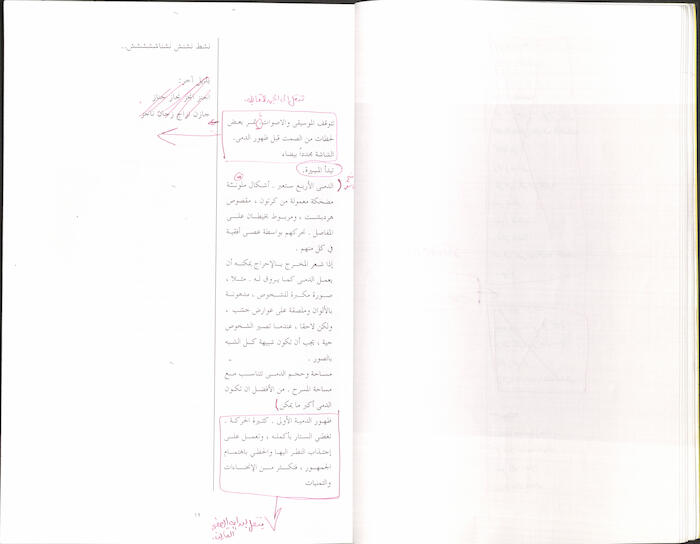 نشط نشنش نشاشششششش..
بديل آخر:
خازن رزانج رنجان ناخز.
تتوقف الموسيقى والاصوات، تمر بعض
لحظات من الصمت قبل ظهور الدمى.
الشاشة مجدداً بيضاء
تبدأ المسيرة.
الدمى الأربع ستعبر. أشكال ملونة
مضحكة معمولة من كرتون، مقصوص
ومربوط بخيطان على
المفاصل. تحركهم بواسطة عصي أفقية
في كل منهم.
إذا شعر المخرج بالإحراج يمكنه أن
يعمل الدمى كما يروق له. مثلا،
صورة مكبرة للشخوص، مدهونة
بالألوان وملصقة على عوارض خشب،
ولكن لاحقا، عندما تصير الشخوص
حية، يجب أن تكون شبيهة كل الشبه
بالصور.
مساحة وحجم الدمى تتناسب مع
مساحة المسرح. من الأفضل ان تكون
الدمى أكبر ما يمكن
ظهور الدمية الأولى. كثيرة الحركة.
تغطي الستار بأكمله، وتعمل على
إجتذاب النظر اليها والحظي باهتمام
الجمهور، فتكثر من الإنحناءات
والتمنيات
١٢